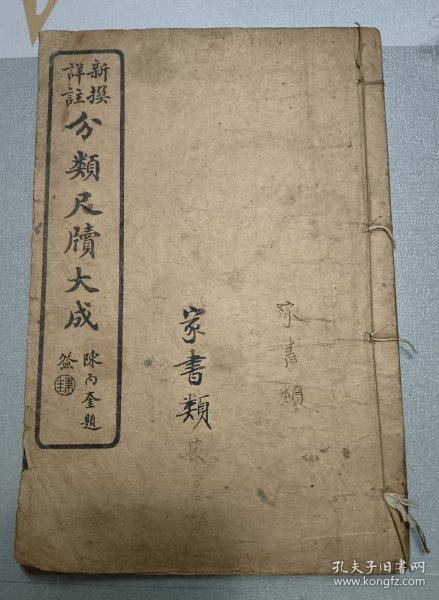 新撰
詳註
分類尺牘大成
陳丙奎題
簽
家書類
家書類
家書類
孔夫子旧书网
www.kongfz.com